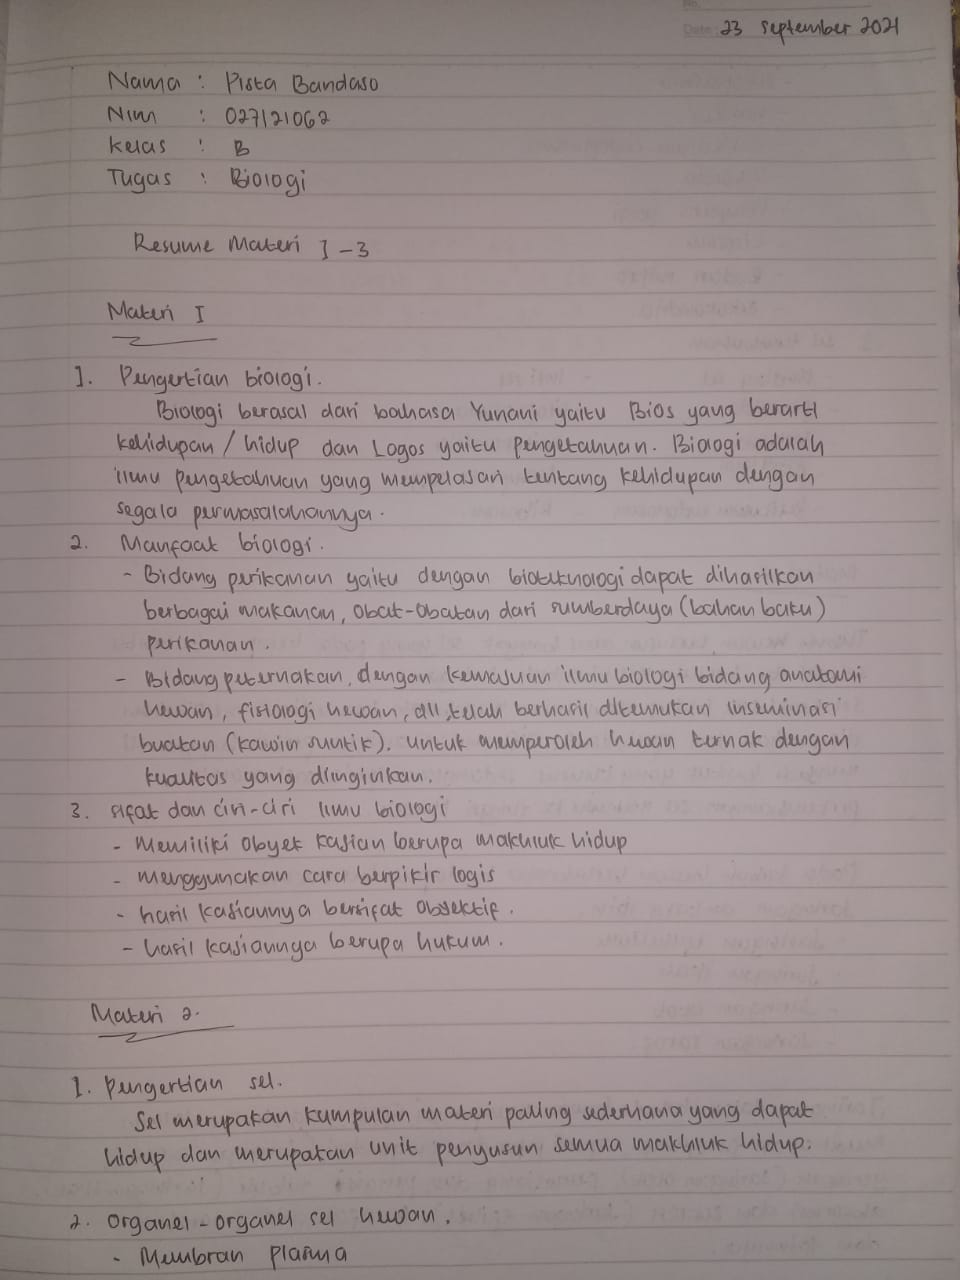 No.
Date : 23 September 2021
Nama : Pista Bandaso
Nim : 027121062
Kelas : B
Tugas : Biologi
Resume Materi I - 3
Materi I
1. Pengertian biologi.
Biologi berasal dari bahasa Yunani yaitu Bios yang berarti
kehidupan / hidup dan Logos yaitu pengetahuan. Biologi adalah
ilmu pengetahuan yang mempelajari tentang kehidupan dengan
segala permasalahannya.
2. Manfaat biologi.
- Bidang perikanan yaitu dengan bioteknologi dapat dihasilkan
berbagai makanan, obat-obatan dari sumberdaya (bahan baku)
perikanan.
- Bidang peternakan, dengan kemajuan ilmu biologi bidang anatomi
hewan, fisiologi hewan, dll, telah berhasil ditemukan inseminasi
buatan (kawin suntik). untuk memperoleh hewan ternak dengan
kualitas yang diinginkan.
3. Sifat dan ciri-ciri ilmu biologi
- Memiliki obyek kajian berupa makhluk hidup
- menggunakan cara berpikir logis
- hasil kajiannya bersifat objektif.
- hasil kajiannya berupa hukum.
Materi 2.
1. Pengertian sel.
Sel merupakan kumpulan materi paling sederhana yang dapat
hidup dan merupakan unit penyusun semua makhluk hidup.
2. Organel-organel sel hewan.
- Membran plasma